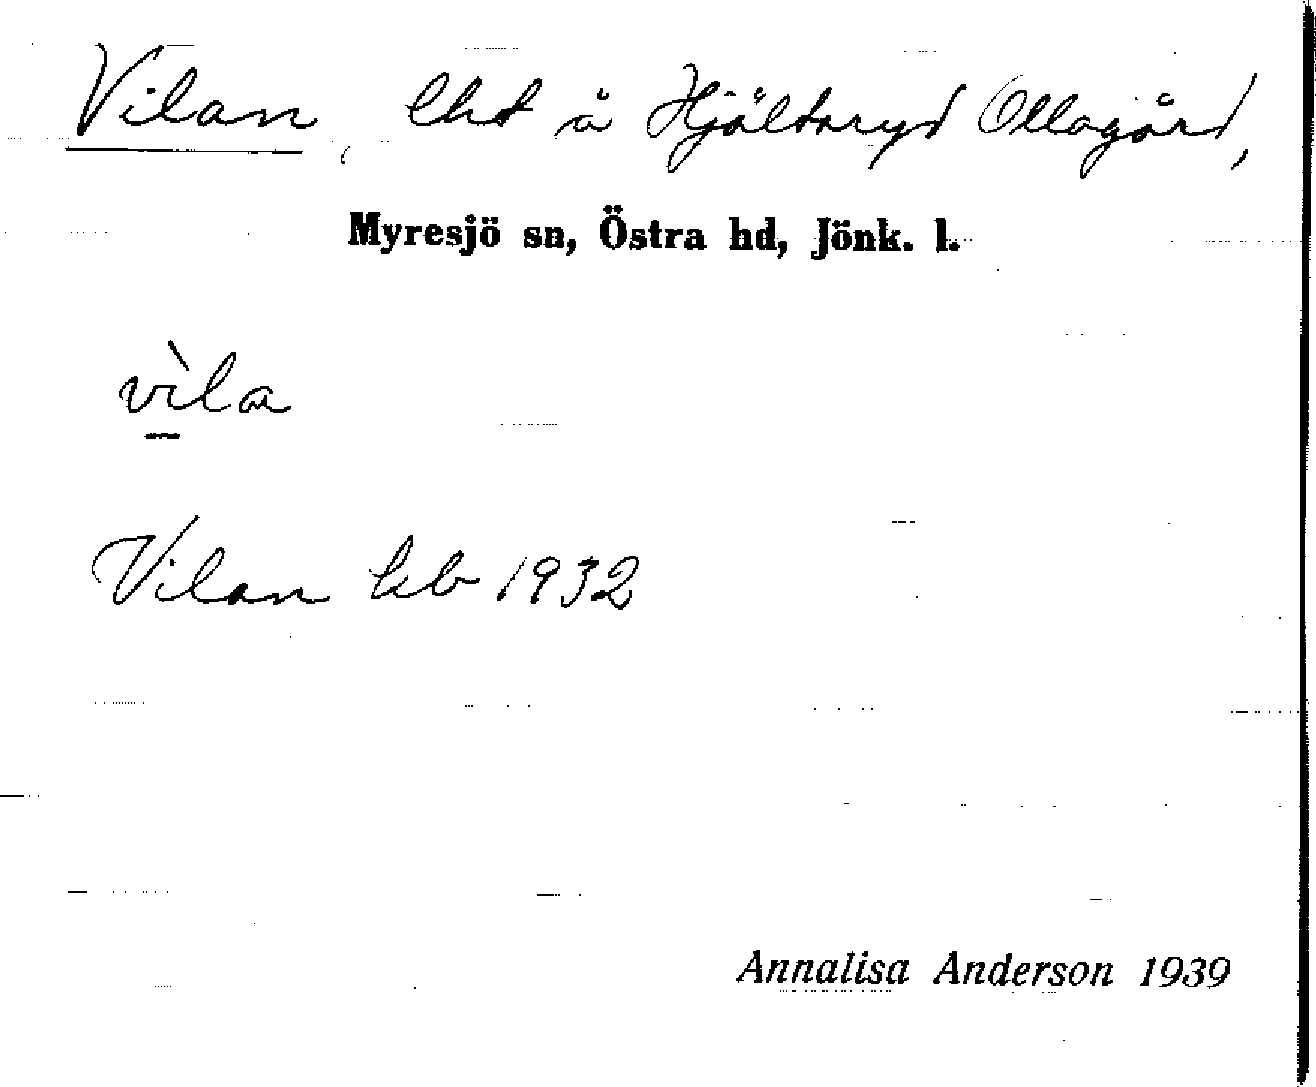 Vilan, lht å Hjältaryd Ollagård,
Myresjö sn, Östra hd, Jönk. l.
vìla
Vilan kb 1932
Annalisa Anderson 1939